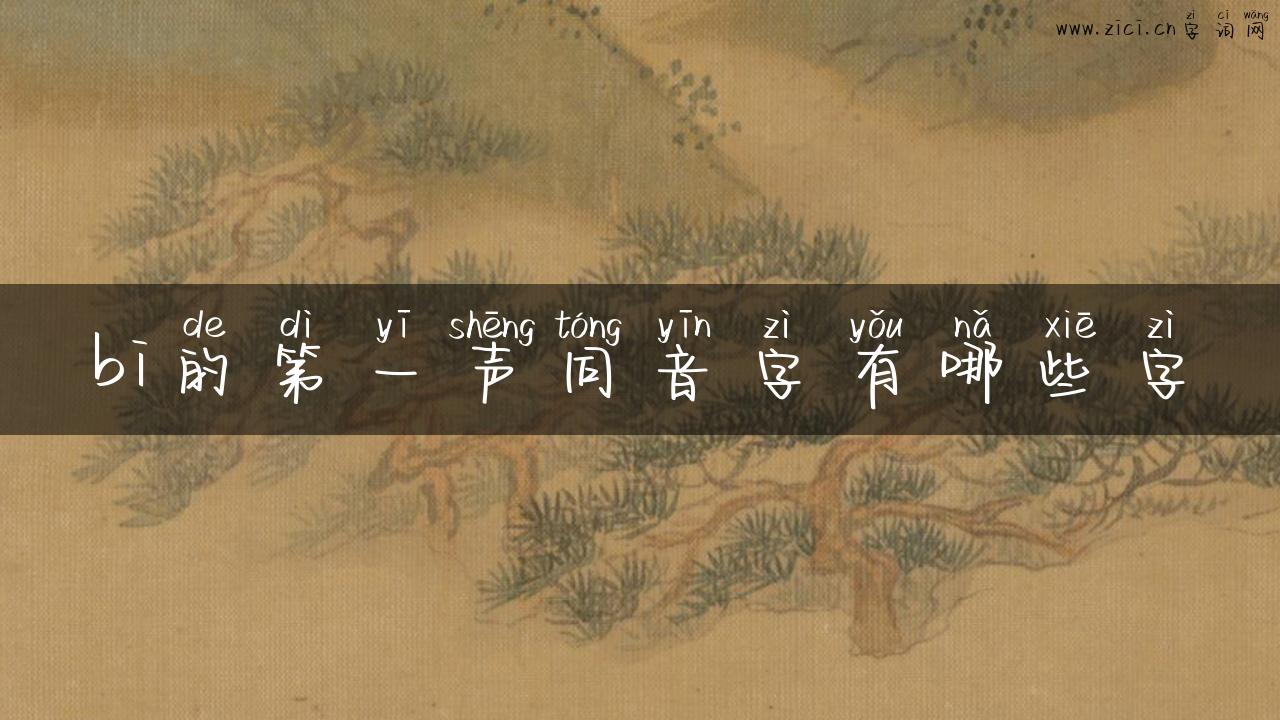 zì cí wǎng
www.zici.cn字词网
de dì yī shēng tóng yīn zì yǒu nǎ xiē zì
bi的第一声同音字有哪些字